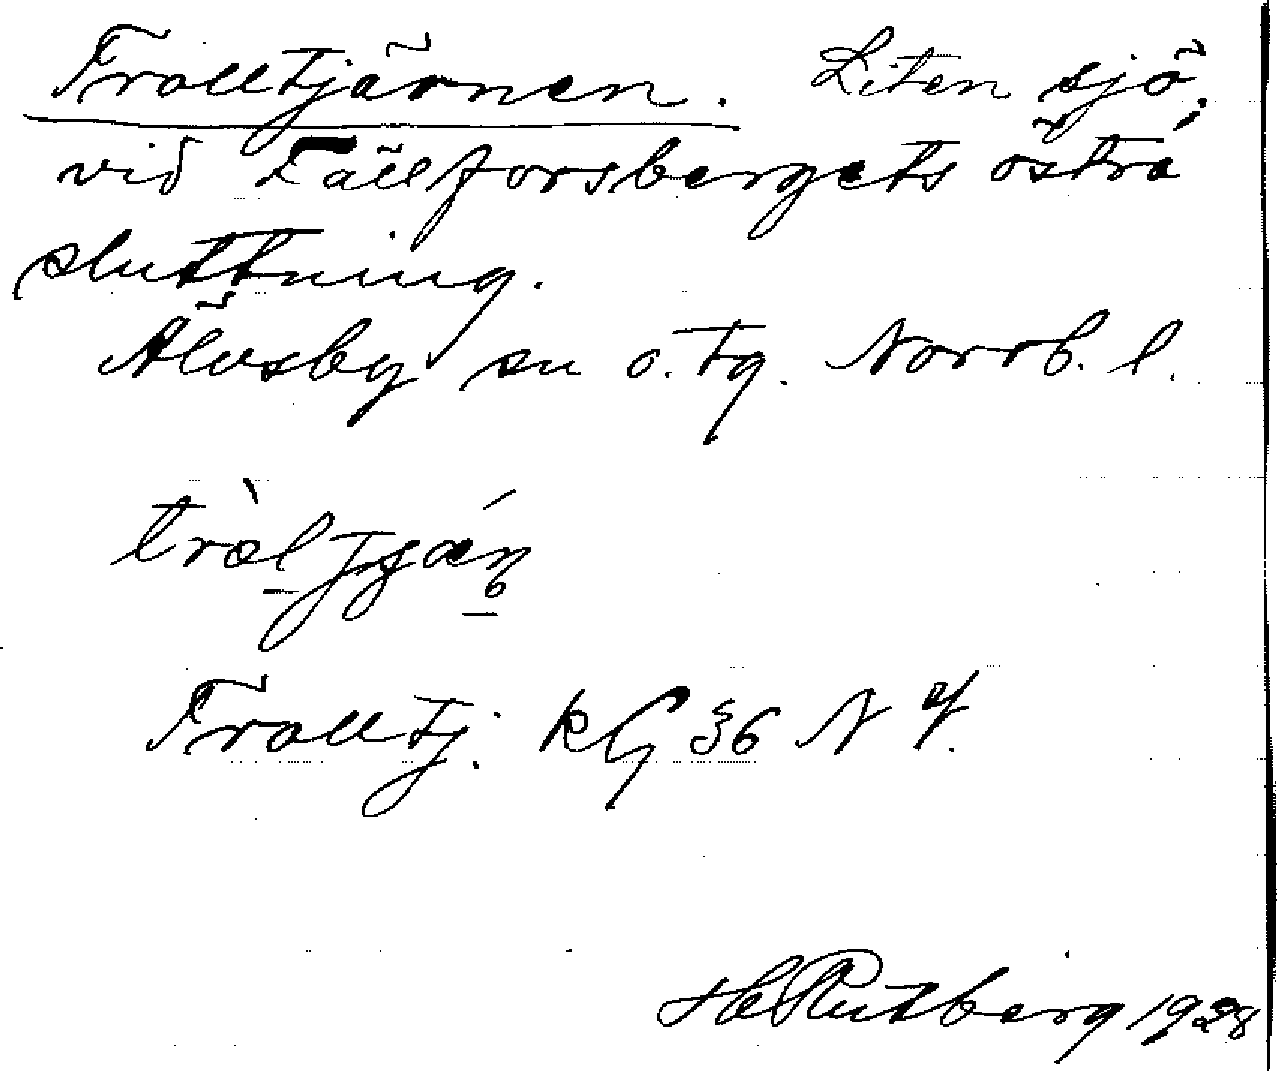 Trolltjärnen. Liten sjö,
vid Fällforsbergets östra
sluttning.
Älvsby sn o. tg. Norrb. l.
Trolltj. kG §6 N 4.
HRutberg 1928